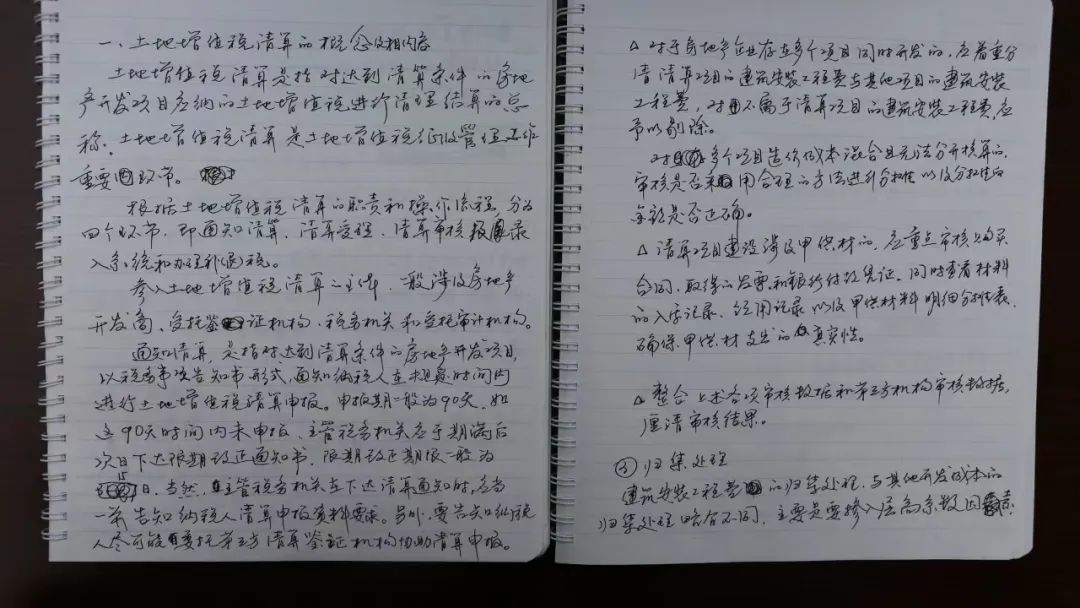 一、土地增值税清算的概念及相内容
土地增值税清算是指对达到清算条件的房地
产开发项目应纳的土地增值税进行清理结算的总
称。土地增值税清算是土地增值税征收管理工作
重要的环节。
根据土地增值税清算的职责和操作流程,分为
四个环节,即通知清算、清算受理、清算审核、录
入系统和办理补退税。
参入土地增值税清算的主体,一般涉及房地产
开发商、受托鉴证机构、税务机关和受托审计机构。
通知清算,是指对达到清算条件的房地产开发项目,
以税务事项告知书形式,通知纳税人在规定时间内
进行土地增值税清算申报。申报期一般为90天,如
这90天时间内未申报,主管税务机关应于期满后
次日下达限期改正通知书,限期改正期限一般为
日,当然,主管税务机关在下达清算通知时,应当
一并告知纳税人清算申报资料要求。另外,要告知纳税
人尽可能委托第三方清算鉴证机构协助清算申报。
△ 对于房地产企业存在多个项目同时开发的,应着重分
清清算项目的建筑安装工程费与其他项目的建筑安装
工程费,对不属于清算项目的建筑安装工程费,应
予以剔除。
对多个项目造价成本混合且无法分开核算的,
审核是否采用合理的方法进行分摊以及分摊的
金额是否正确。
△ 清算项目建设涉及甲供材的,应重点审核购买
合同、取得的发票和银行付款凭证。同时查看材料
的入库记录、领用记录以及甲供材料明细分摊表,
确保甲供材支出的真实性。
△ 整合上述各项审核数据和第三方机构审核数据,
厘清审核结果。
③ 归集处理
建筑安装工程费的归集处理,与其他开发成本的
归集处理略有不同,主要是要掺入层高系数因素。